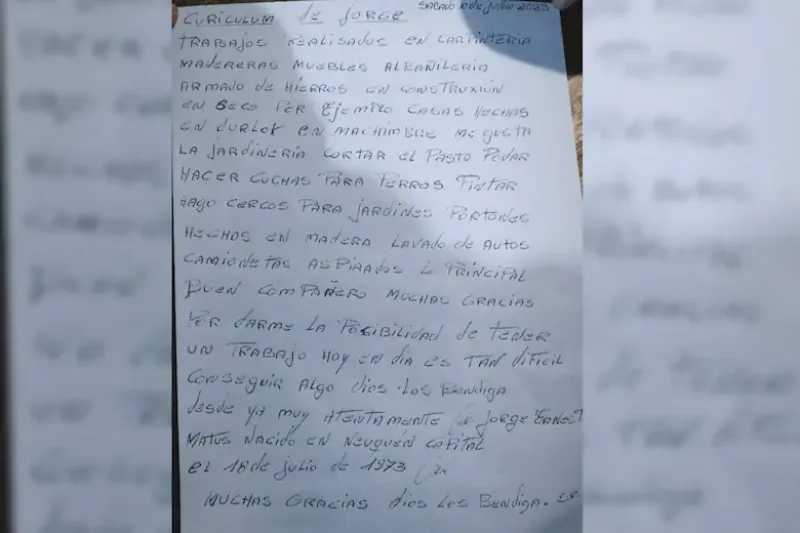 CURICULUM de JORGE. SACADO 10 de Julio 2023
TRABAJOS REALISADOS en CARPINTERIA
MADERERAS MUEBLES ALBAÑILERIA
ARMADO de HIERROS en CONSTRUXIÓN
en SECO POR Ejemplo CASAS HECHAS
en DURLOK en MACHIMBRE ME GUSTA
LA JARDINERÍA CORTAR el PASTO PODAR
HACER CUCHAS PARA PERROS PINTAR
HAGO CERCOS PARA JARDINES PORTONES
HECHAS en MADERA LAVADO de AUTOS
CAMIONETAS ASPIRADOS LO PRINCIPAL
BUEN COMPAÑERO MUCHAS GRACIAS
POR DARME LA POSIBILIDAD de TENER
UN TRABAJO HOY EN DÍA ES TAN DIFICIL
CONSEGUIR ALGO DIOS LOS BENDIGA
desde YA MUY ATENTAMENTE JORGE ERNEST
MATUS NACIDO EN NEUQUÉN CAPITAL
el 18 de julio de 1973
MUCHAS GRACIAS DIOS LOS BENDIGA.